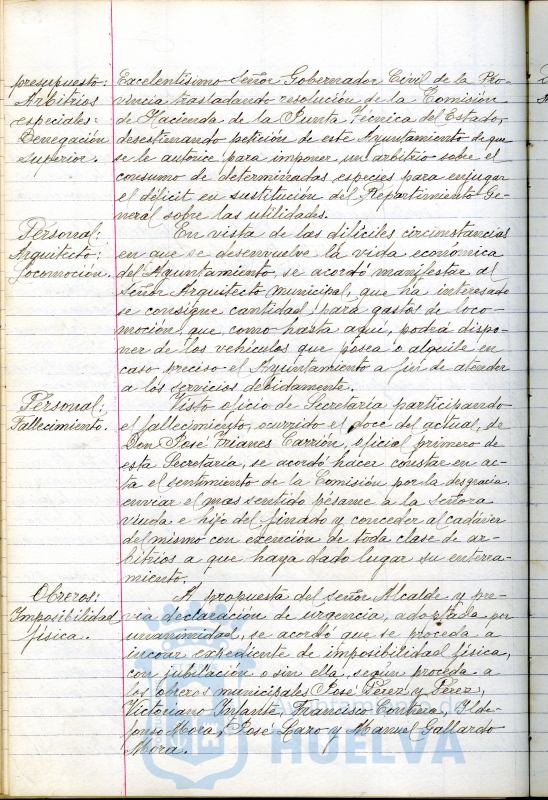 presupuesto: Excelentísimo Señor Gobernador Civil de la Pro-
Arbitrios vincia trasladando resolución de la Comisión
especiales: de Hacienda de la Junta Técnica del Estado,
Denegación desestimando petición de este Ayuntamiento de que
superior. se le autorice para imponer un arbitrio sobre el
consumo de determinadas especies para enjugar
el déficit en sustitución del Repartimiento Ge-
neral sobre las utilidades.
Personal: En vista de las difíciles circunstancias
Arquitecto: en que se desenvuelve la vida económica
Locomoción. del Ayuntamiento, se acordó manifestar al
Señor Arquitecto municipal, que ha interesado
se consigne cantidad para gastos de loco-
moción, que, como hasta aquí, podrá dispo-
ner de los vehículos que posea o alquile en
caso preciso el Ayuntamiento a fin de atender
a los servicios debidamente.
Personal: Visto oficio de Secretaría participando
Fallecimiento. el fallecimiento, ocurrido el doce del actual, de
Don José Trianes Carrión, oficial primero de
esta Secretaría, se acordó hacer constar en ac-
ta el sentimiento de la Comisión por la desgracia,
enviar el mas sentido pésame a la Señora
viuda e hijo del finado y conceder al cadáver
del mismo con exención de toda clase de ar-
bitrios a que haya dado lugar su enterra-
miento.
Obreros: A propuesta del señor Alcalde y pre-
Imposibilidad via declaración de urgencia, adoptada por
física. unanimidad, se acordó que se proceda a
incoar expediente de imposibilidad física,
con jubilación o sin ella, según proceda a
los obreros municipales José Pérez y Pérez,
Victoriano Infante, Francisco Contena, Ilde-
fonso Mora, José Lazo y Manuel Gallardo
Mora.
HUELVA